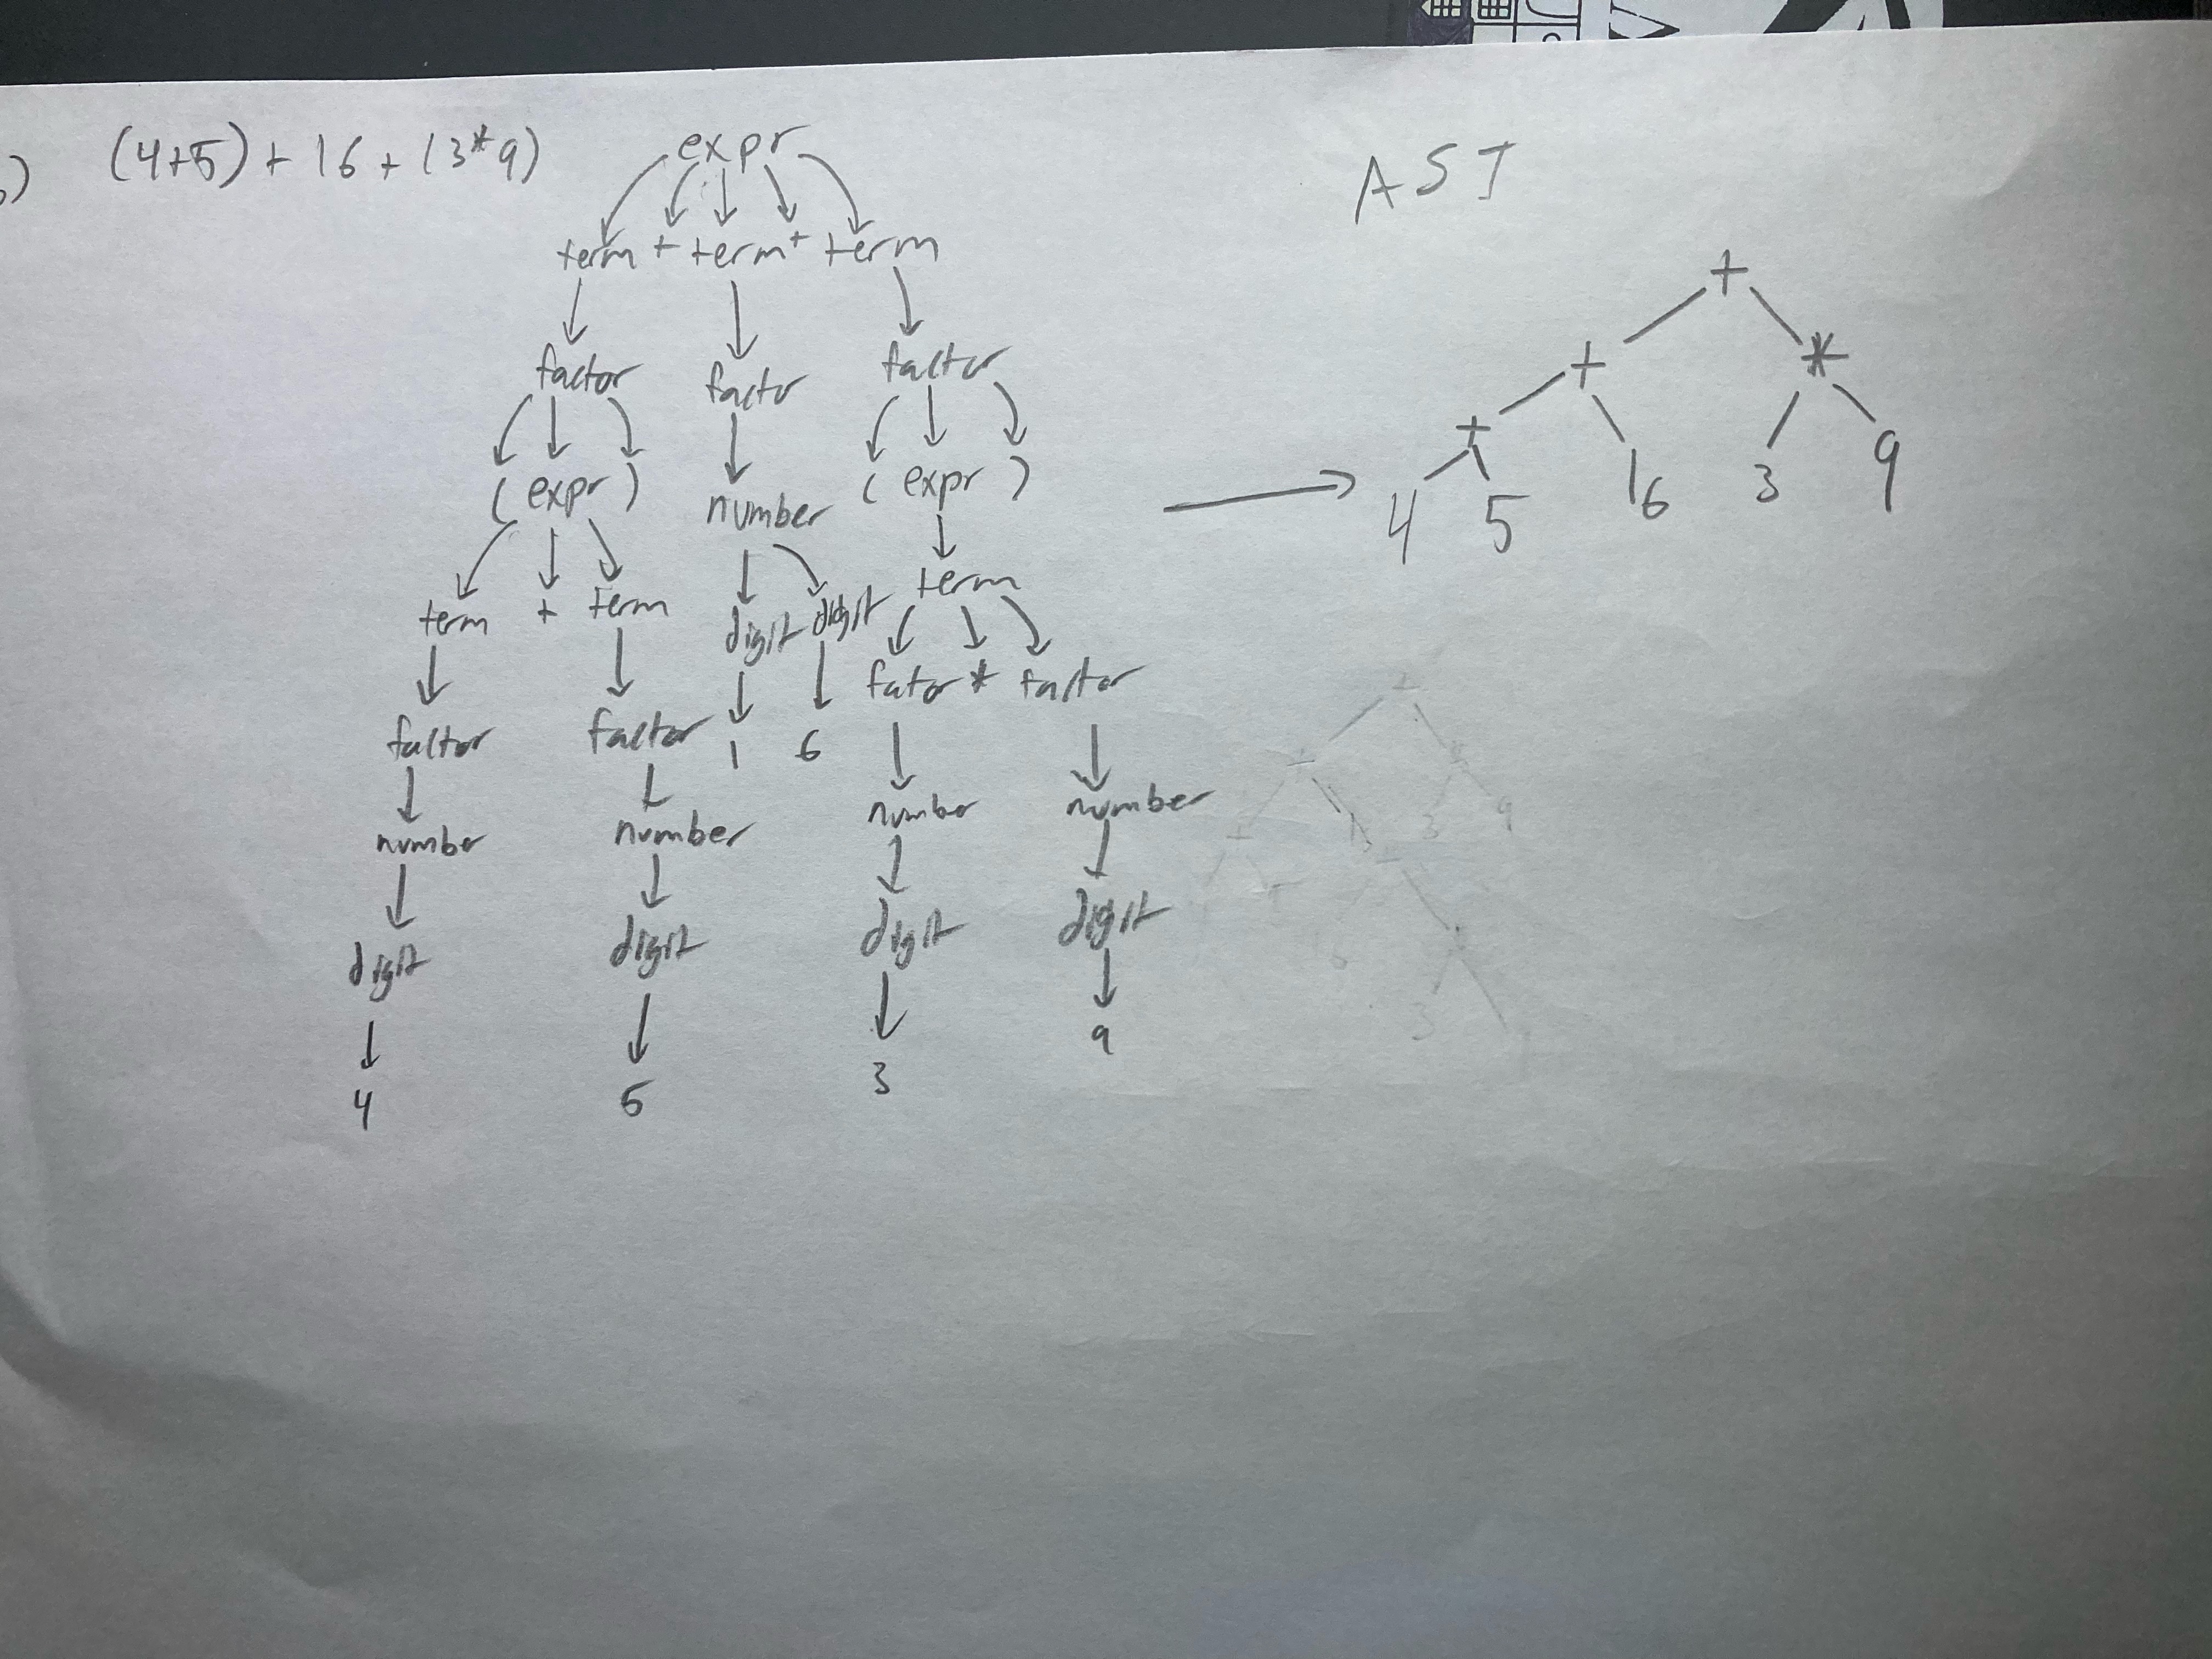 (4+5) + 16 + (3*9)
AST
expr
term + term + term
factor factor factor
( expr ) number ( expr )
term + term digit digit term
factor factor 1 6 factor * factor
number number number number
digit digit digit digit
4 5 3 9
+
+ *
+ 16 3 9
4 5